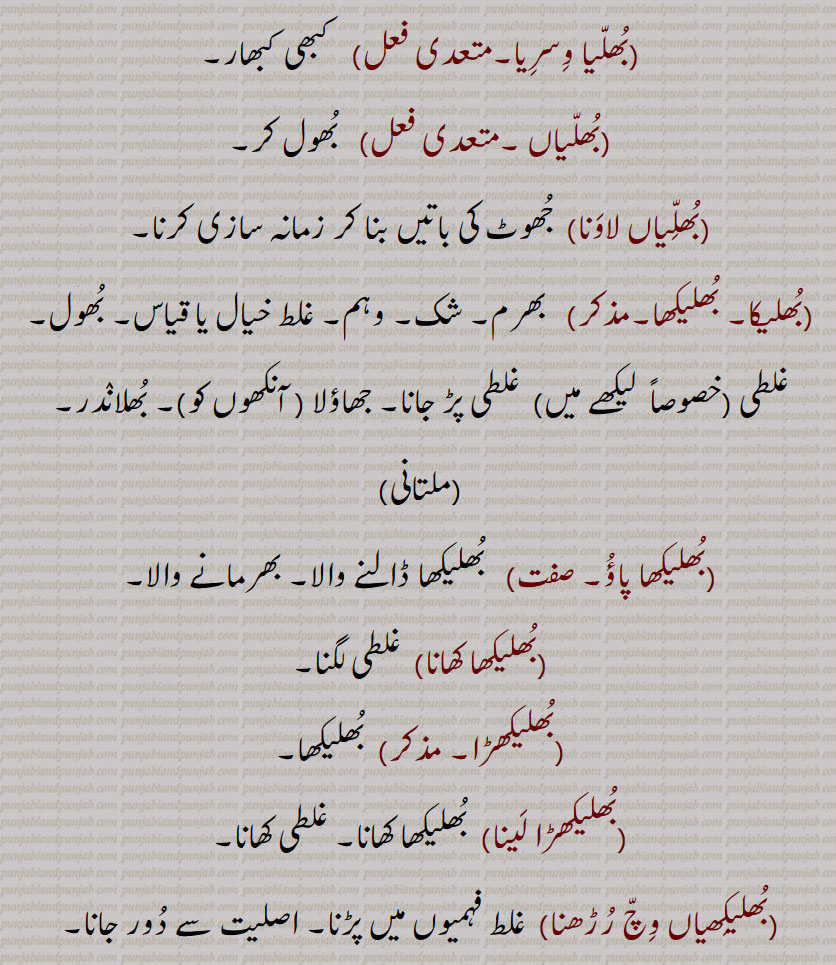 (بُھلّیا وِسرِیا۔متعدی فعل) کبھی کبھار۔
(بُھلّیاں ۔متعدی فعل) بُھول کر۔
(بُھلِّیاں لاوَنا) جُھوٹ کی باتیں بنا کر زمانہ سازی کرنا۔
(بُھلیکا۔ بُھلیکھا۔مذکر) بھرم۔ شک۔ وہم۔ غلط خیال یا قیاس۔ بُھول۔
غلطی (خصوصاً لیکھے میں) غلطی پڑ جانا۔ جھاؤلا ( آنکھوں کو)۔ بُھلانْدر۔
(ملتانی)
(بُھلیکھا پاؤُ۔ صفت) بُھلیکھا ڈالنے والا۔ بھرمانے والا۔
(بُھلیکھا کھانا) غلطی لگنا۔
(بُھلیکھڑا۔ مذکر) بُھلیکھا۔
(بُھلیکھڑا لَینا) بُھلیکھا کھانا۔ غلطی کھانا۔
(بُھلیکِھیاں وِچّ رُڑھنا) غلط فہمیوں میں پڑنا۔ اصلیت سے دُور جانا۔